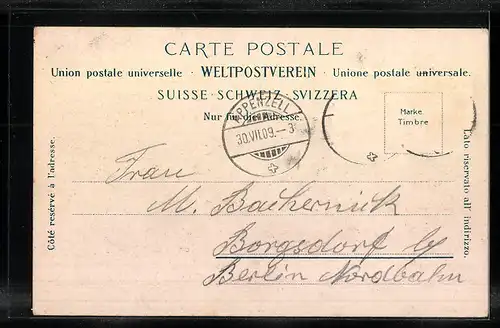 CARTE POSTALE
Union postale universelle · WELTPOSTVEREIN · Unione postale universale.
SUISSE · SCHWEIZ · SVIZZERA
Nur für die Adresse.
APPENZELL
30.VII.09. – 3
Marke
Timbre
Côté reservé à l'adresse.
Lato riservato all' indirizzo.
Frau
M. Bachernick
Borgsdorf b/
Berlin Nordbahn